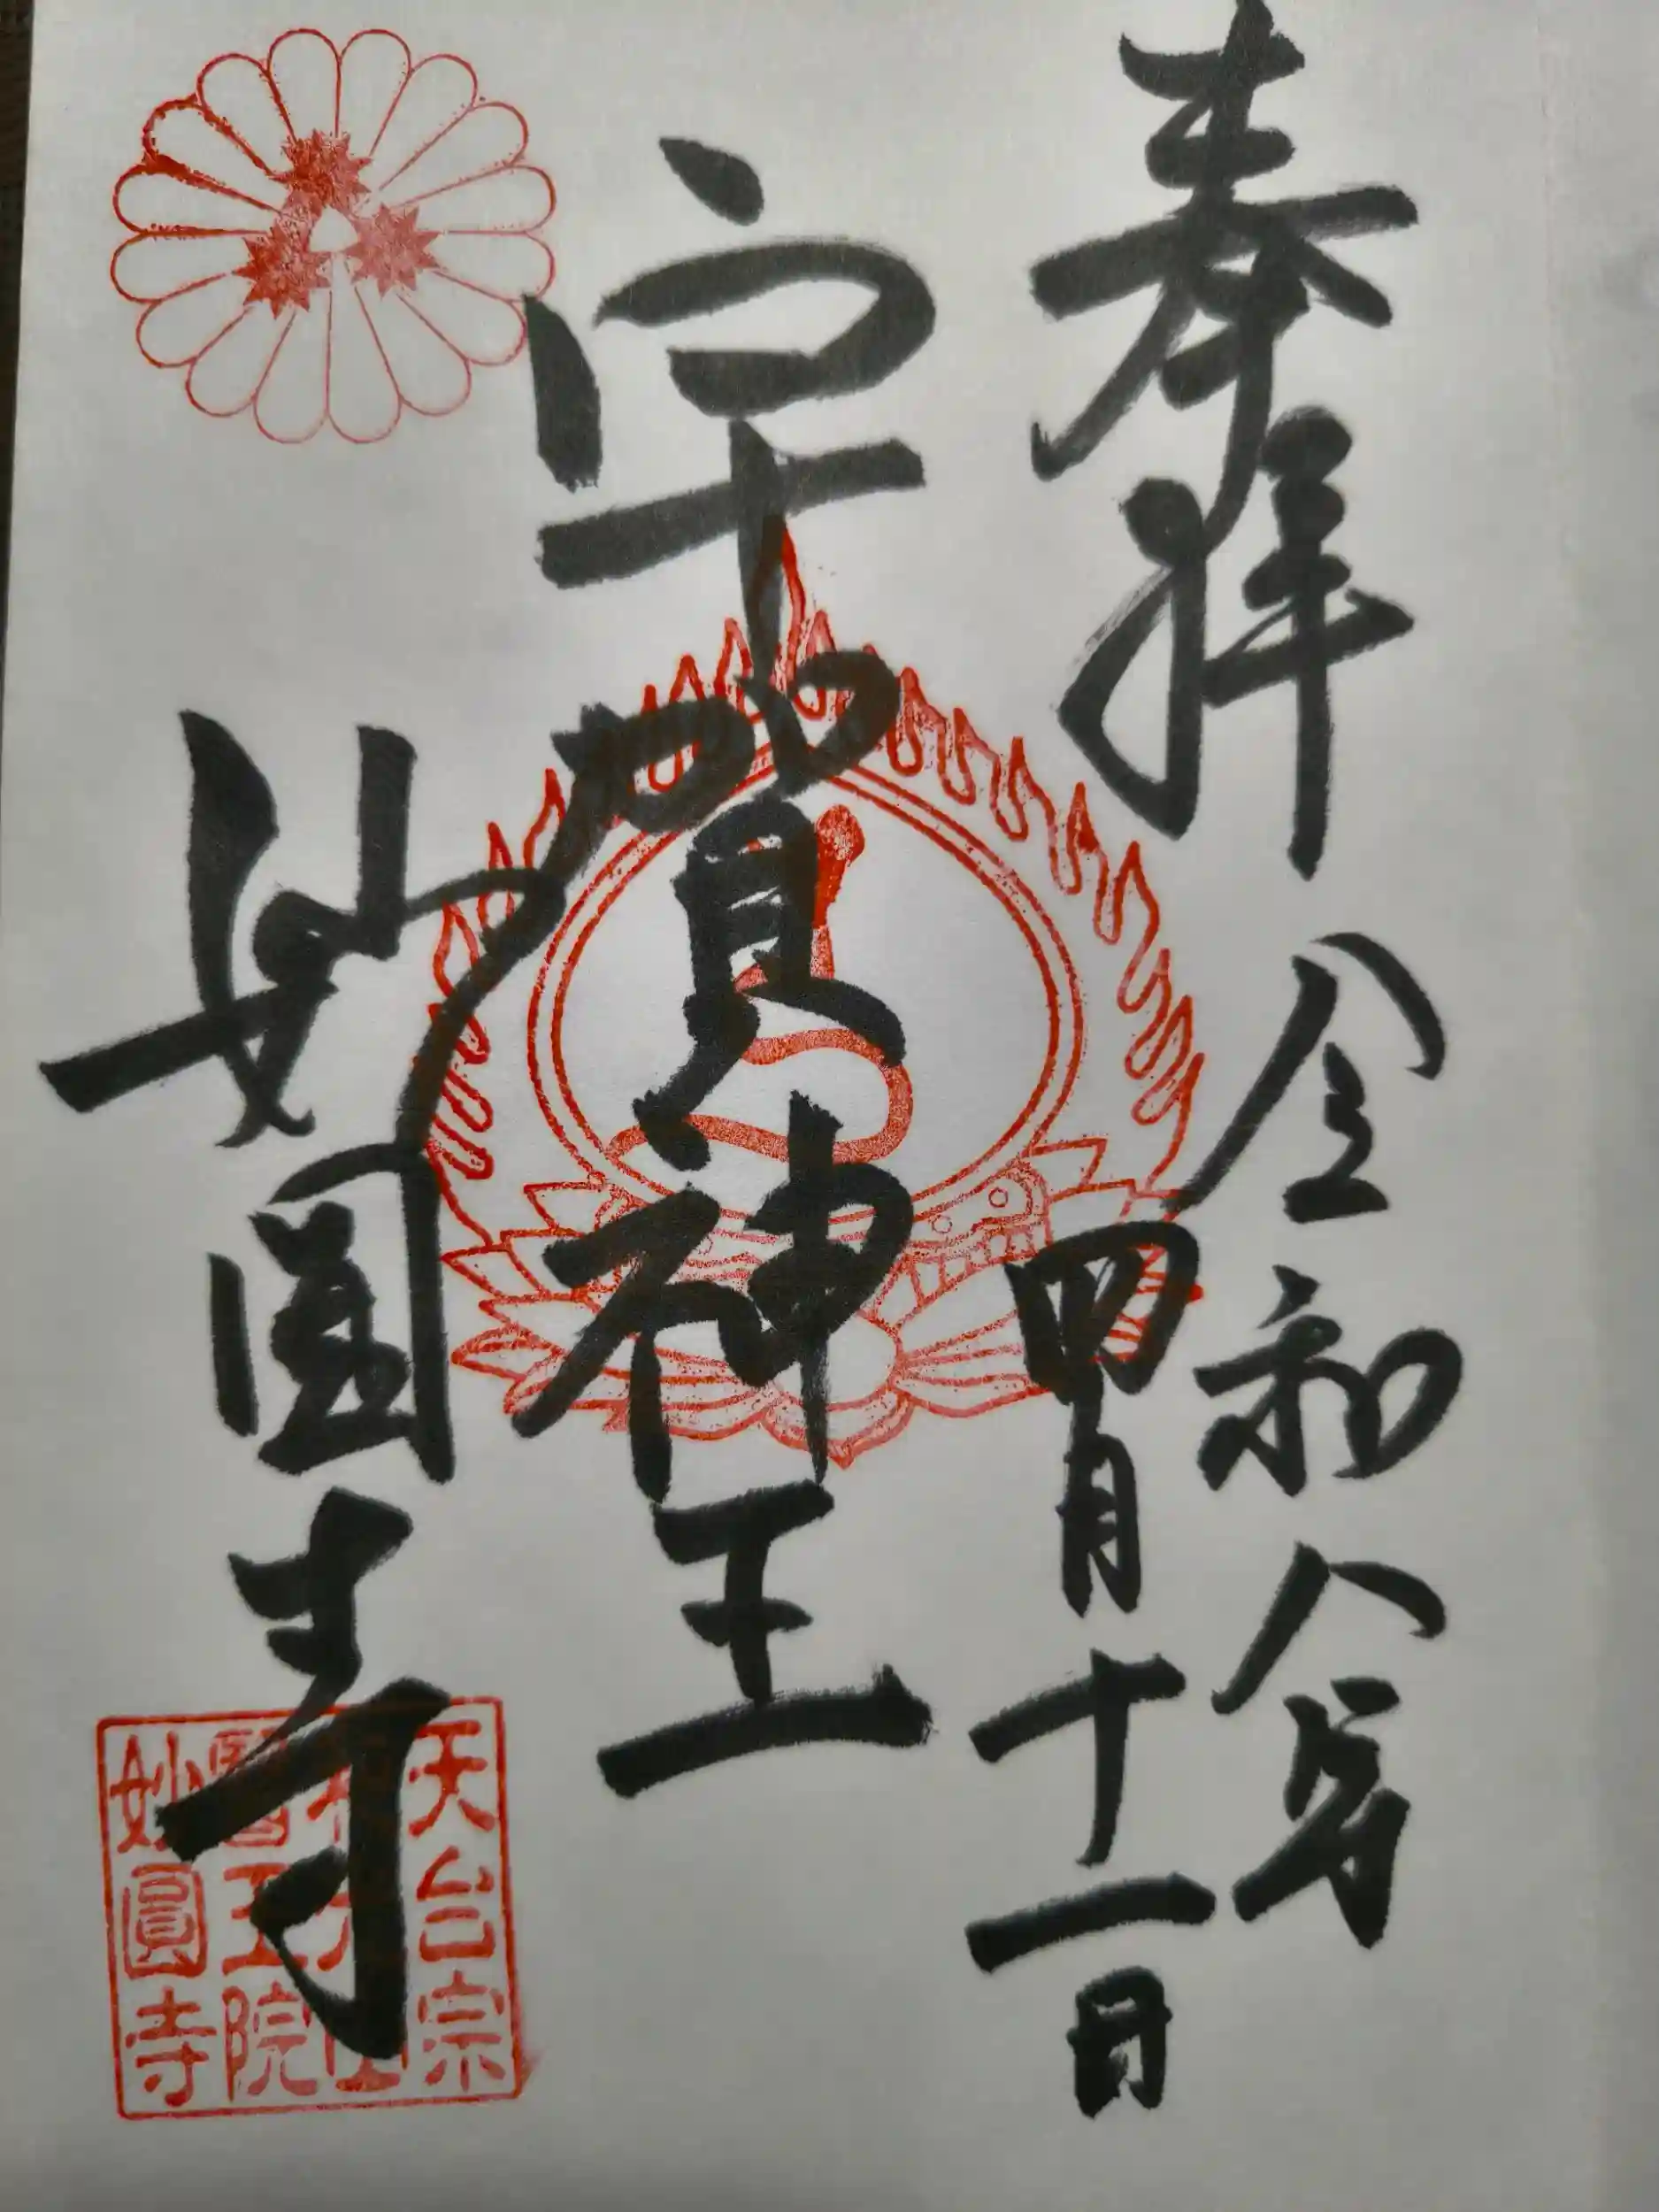 奉拝
令和八年
四月十一日
宇賀神王
妙圓寺
天台宗
醫王院
妙圓寺